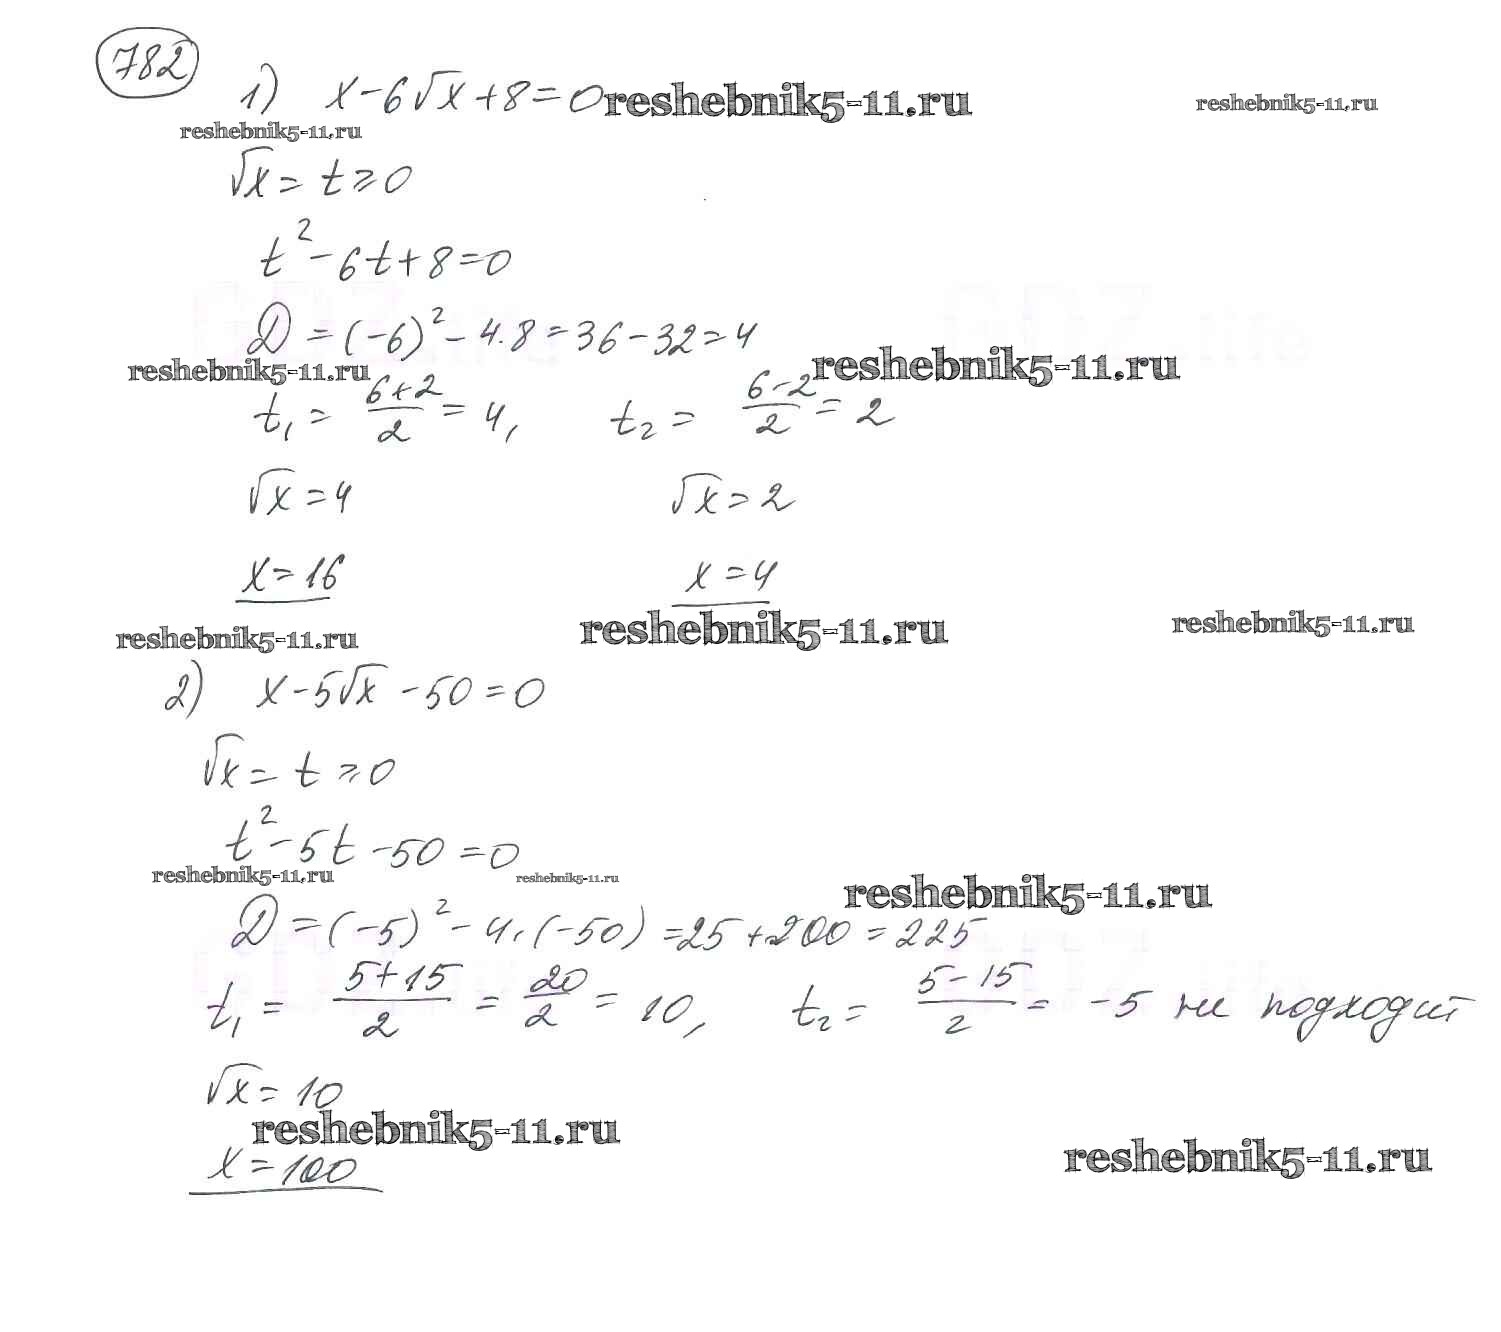 782
1) x-6√x+8=0 reshebnik5-11.ru reshebnik5-11.ru
reshebnik5-11.ru
√x = t ≥ 0
t²-6t+8=0
D = (-6)² - 4·8 = 36-32 = 4
reshebnik5-11.ru reshebnik5-11.ru
t₁ = (6+2)/2 = 4, t₂ = (6-2)/2 = 2
√x = 4 √x = 2
x = 16 x = 4
reshebnik5-11.ru reshebnik5-11.ru reshebnik5-11.ru
2) x-5√x-50=0
√x = t ≥ 0
t²-5t-50=0
reshebnik5-11.ru reshebnik5-11.ru reshebnik5-11.ru
D = (-5)² - 4·(-50) = 25+200 = 225
t₁ = (5+15)/2 = 20/2 = 10, t₂ = (5-15)/2 = -5 не подходит
√x = 10
reshebnik5-11.ru reshebnik5-11.ru
x = 100